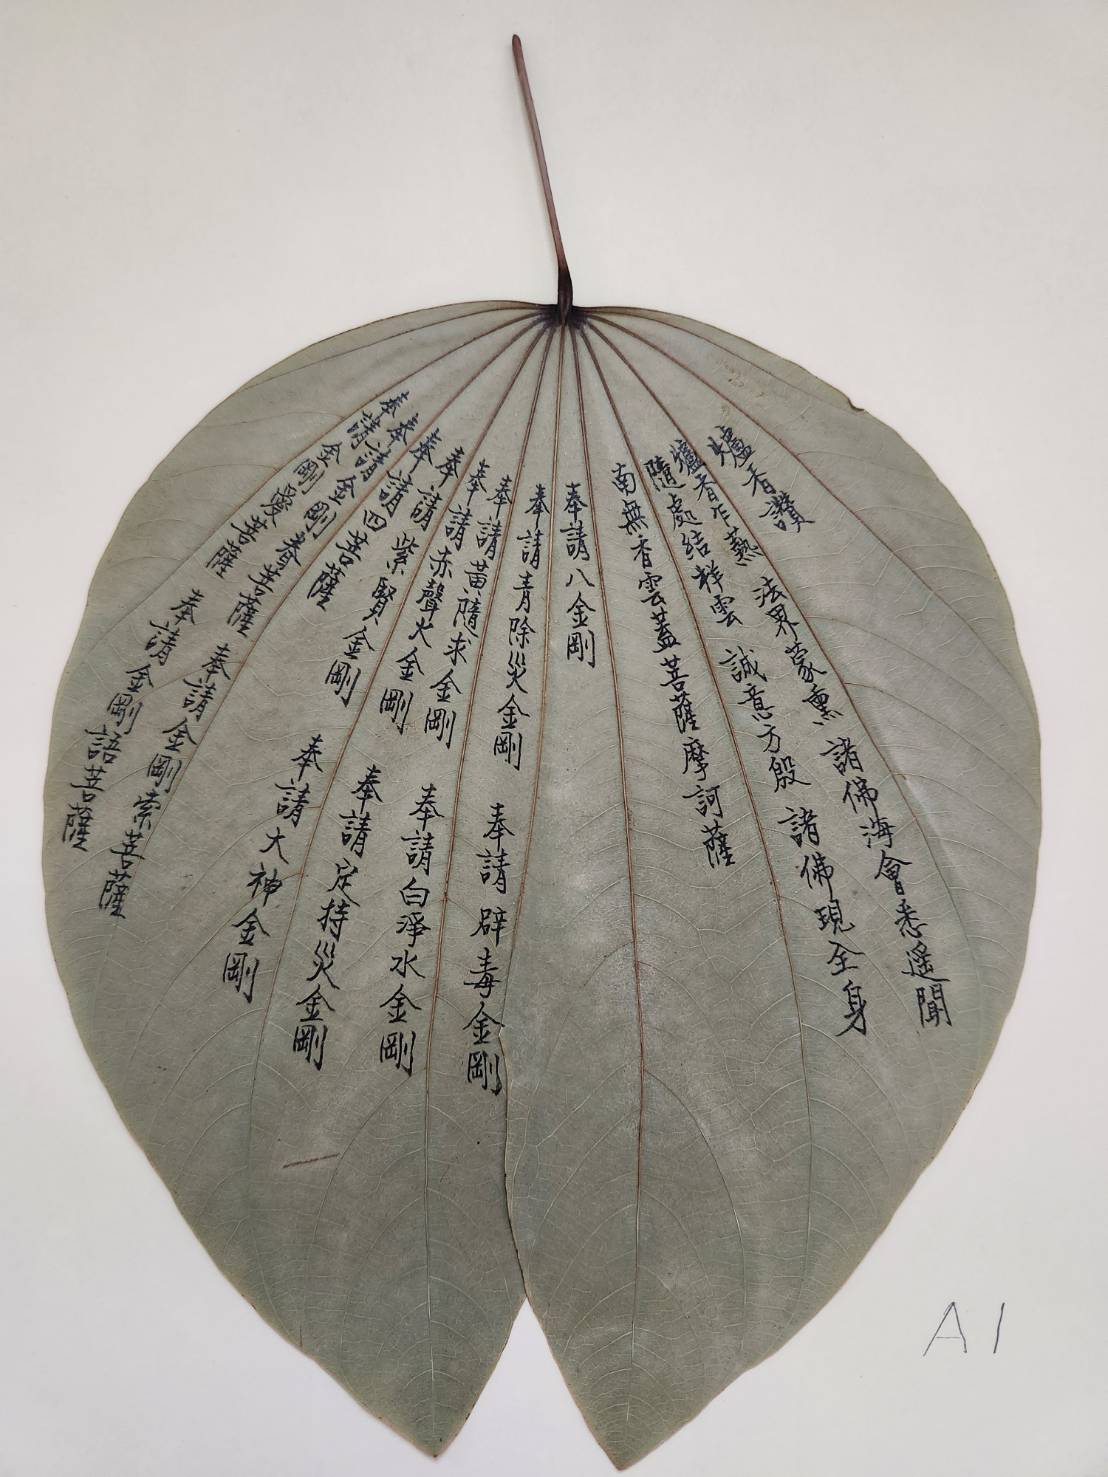 爐香讚
爐香乍爇 法界蒙熏 諸佛海會悉遙聞
隨處結祥雲 誠意方殷 諸佛現全身
南無香雲蓋菩薩摩訶薩
奉請八金剛
奉請青除災金剛 奉請辟毒金剛
奉請黃隨求金剛 奉請白淨水金剛
奉請赤聲火金剛 奉請定持災金剛
奉請紫賢金剛 奉請大神金剛
奉請四菩薩
奉請金剛眷菩薩 奉請金剛索菩薩
奉請金剛愛菩薩 奉請金剛語菩薩
A1